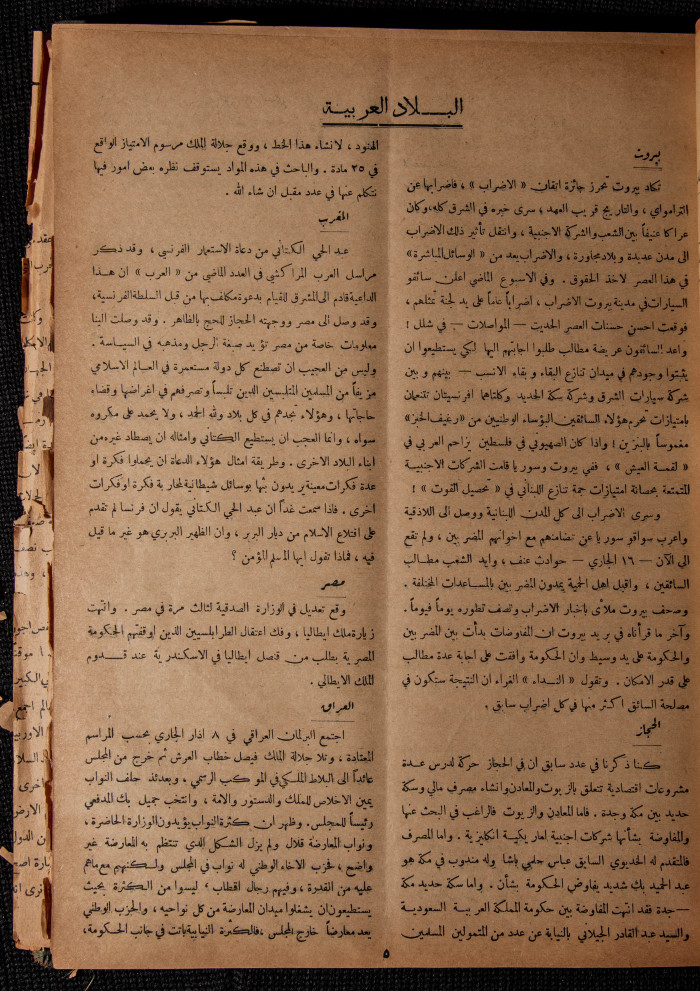 البلاد العربية
بيروت
تكاد بيروت تحرز جائزة اتقان « الاضراب » ، فاضرابها عن
التراموای ، والتاريخ قريب العهد ؛ سرى خبره في الشرق كله ، وكان
عراكا عنيفاً بين الشعب والشركة الاجنبية ، وانتقل تأثير ذلك الاضراب
الى مدن عديدة وبلاد مجاورة ، والاضراب بعد من « الوسائل المباشرة »
في هذا العصر لاخذ الحقوق . وفي الاسبوع الماضي اعلن سائقو
السيارات في مدينة بيروت الاضراب ، اضراباً عاماً على يد لجنة تمثلهم ،
فوقعت احسن حسنات العصر الحديث — المواصلات — في شلل !
واعد السائقون عريضة مطالب طلبوا اجابتهم اليها لكي يستطيعوا ان
يثبتوا وجودهم في ميدان تنازع البقاء و بقاء الانسب — بينهم و بين
شركة سيارات الشرق وشركة سكة الحديد وكلتاهما افرنسيتان تتمتعان
بامتيازات تحرم هؤلاء السائقين البؤساء الوطنيين من « رغيف الخبز »
مغموساً بالبنزين ! واذا كان الصهيوني في فلسطين يزاحم العربي في
« لقمة العيش » ، ففي بيروت وسوريا قامت الشركات الاجنبية
المتمتعة بحصانة امتيازات جمة تنازع اللبناني في « تحصيل القوت » !
وسرى الاضراب الى كل المدن اللبنانية ووصل الى اللاذقية
واعرب سواقو سوريا عن تضامنهم مع اخوانهم المضربين ، ولم تقع
الى الآن — ١٦ الجاري — حوادث عنف ، وايد الشعب مطالب
السائقين ، واقبل اهل الحمية يمدون المضربين بالمساعدات المختلفة .
وصحف بيروت ملأى باخبار الاضراب وتصف تطوره يوماً فيوماً .
وآخر ما قرأناه في بريد بيروت ان المفاوضات بدأت بين المضربين
والحكومة على يد وسيط وان الحكومة وافقت على اجابة عدة مطالب
على قدر الامكان . وتقول « النداء » الغراء ان النتيجة ستكون في
مصلحة السائق اكثر منها في كل اضراب سابق .
الحجاز
كنا ذكرنا في عدد سابق ان في الحجاز حركة لدرس عدة
مشروعات اقتصادية تتعلق بالزيوت والمعادن وانشاء مصرف مالي وسكة
حديد بين مكة وجدة . فاما المعادن والزيوت فالراغب في البحث عنها
والمفاوضة بشأنها شركات اجنبية اماريكية انكليزية . واما المصرف
فالمتقدم له الخديوي السابق عباس حلمي باشا وله مندوب في مكة هو
عبد الحميد بك شديد يفاوض الحكومة بشأن . واما سكة حديد مكة
— جدة فقد انتهت المفاوضة بين حكومة المملكة العربية السعودية
والسيد عبد القادر الجيلاني بالنيابة عن عدد من المتمولين المسلمين
الهنود ، لانشاء هذا الخط ، ووقع جلالة الملك مرسوم الامتياز الواقع
في ٣٥ مادة . والباحث في هذه المواد يستوقف نظره بعض امور فيها
نتكلم عنها في عدد مقبل ان شاء الله .
المغرب
عبد الحي الكتاني من دعاة الاستعمار الفرنسي ، وقد ذكر
مراسل العرب المراكشي في العدد الماضي من « العرب » ان هذا
الداعية قادم الى المشرق للقيام بدعوة مكلف بها من قبل السلطة الفرنسية ،
وقد وصل الى مصر ووجهته الحجاز للحج بالظاهر . وقد وصلت الينا
معلومات خاصة من مصر تؤيد صبغة الرجل ومذهبه في السياسة .
وليس من العجيب ان تصطنع كل دولة مستعمرة في العالم الاسلامي
فريقاً من المسلمين المتلبسين الدين تلبساً وتصرفهم في اغراضها وقضاء
حاجاتها ، وهؤلاء تجدهم في كل بلاد ولله الحمد ، ولا يحمد على مكروه
سواه ، وانما العجب ان يستطيع الكتاني وامثاله ان يصطاد غيره من
ابناء البلاد الاخرى . وطريقة امثال هؤلاء الدعاة ان يحملوا فكرة او
عدة فكرات معينة يريدون بثها بوسائل شيطانية لمحاربة فكرة او فكرات
اخرى . فاذا سمعت غداً ان عبد الحي الكتاني يقول ان فرنسا لم تقدم
على اقتلاع الاسلام من ديار البربر ، وان الظهير البربري هو غير ما قيل
فيه ، فماذا تقول ايها المسلم المؤمن ؟
مصر
وقع تعديل في الوزارة الصدقية لثالث مرة في مصر . وانتهت
زيارة ملك ايطاليا ، وفك اعتقال الطرابلسيين الذين اوقفتهم الحكومة
المصرية بطلب من قنصل ايطاليا في الاسكندرية عند قدوم
الملك الايطالي .
العراق
اجتمع البرلمان العراقي في ٨ اذار الجاري بحسب المراسم
المعتادة ، وتلا جلالة الملك فيصل خطاب العرش ثم خرج من المجلس
عائداً الى البلاط الملكي في الموكب الرسمي ، وبعدئذ حلف النواب
يمين الاخلاص للملك والدستور والامة ، وانتخب جميل بك المدفعي
رئيساً للمجلس . وظهر ان كثرة النواب يؤيدون الوزارة الحاضرة ،
ونواب المعارضة قلال ولم يزل الشكل الذي تنتظم به المعارضة غير
واضح ، فحزب الاخاء الوطني له نواب في المجلس ولكنهم مع ماهم
عليه من القدرة ، وفيهم رجال اقطاب ، ليسوا من الكثرة بحيث
يستطيعون ان يشغلوا ميدان المعارضة من كل نواحيه ، والحزب الوطني
يعد معارضاً خارج المجلس ، فالكثرة النيابية باتت في جانب الحكومة ،
٥